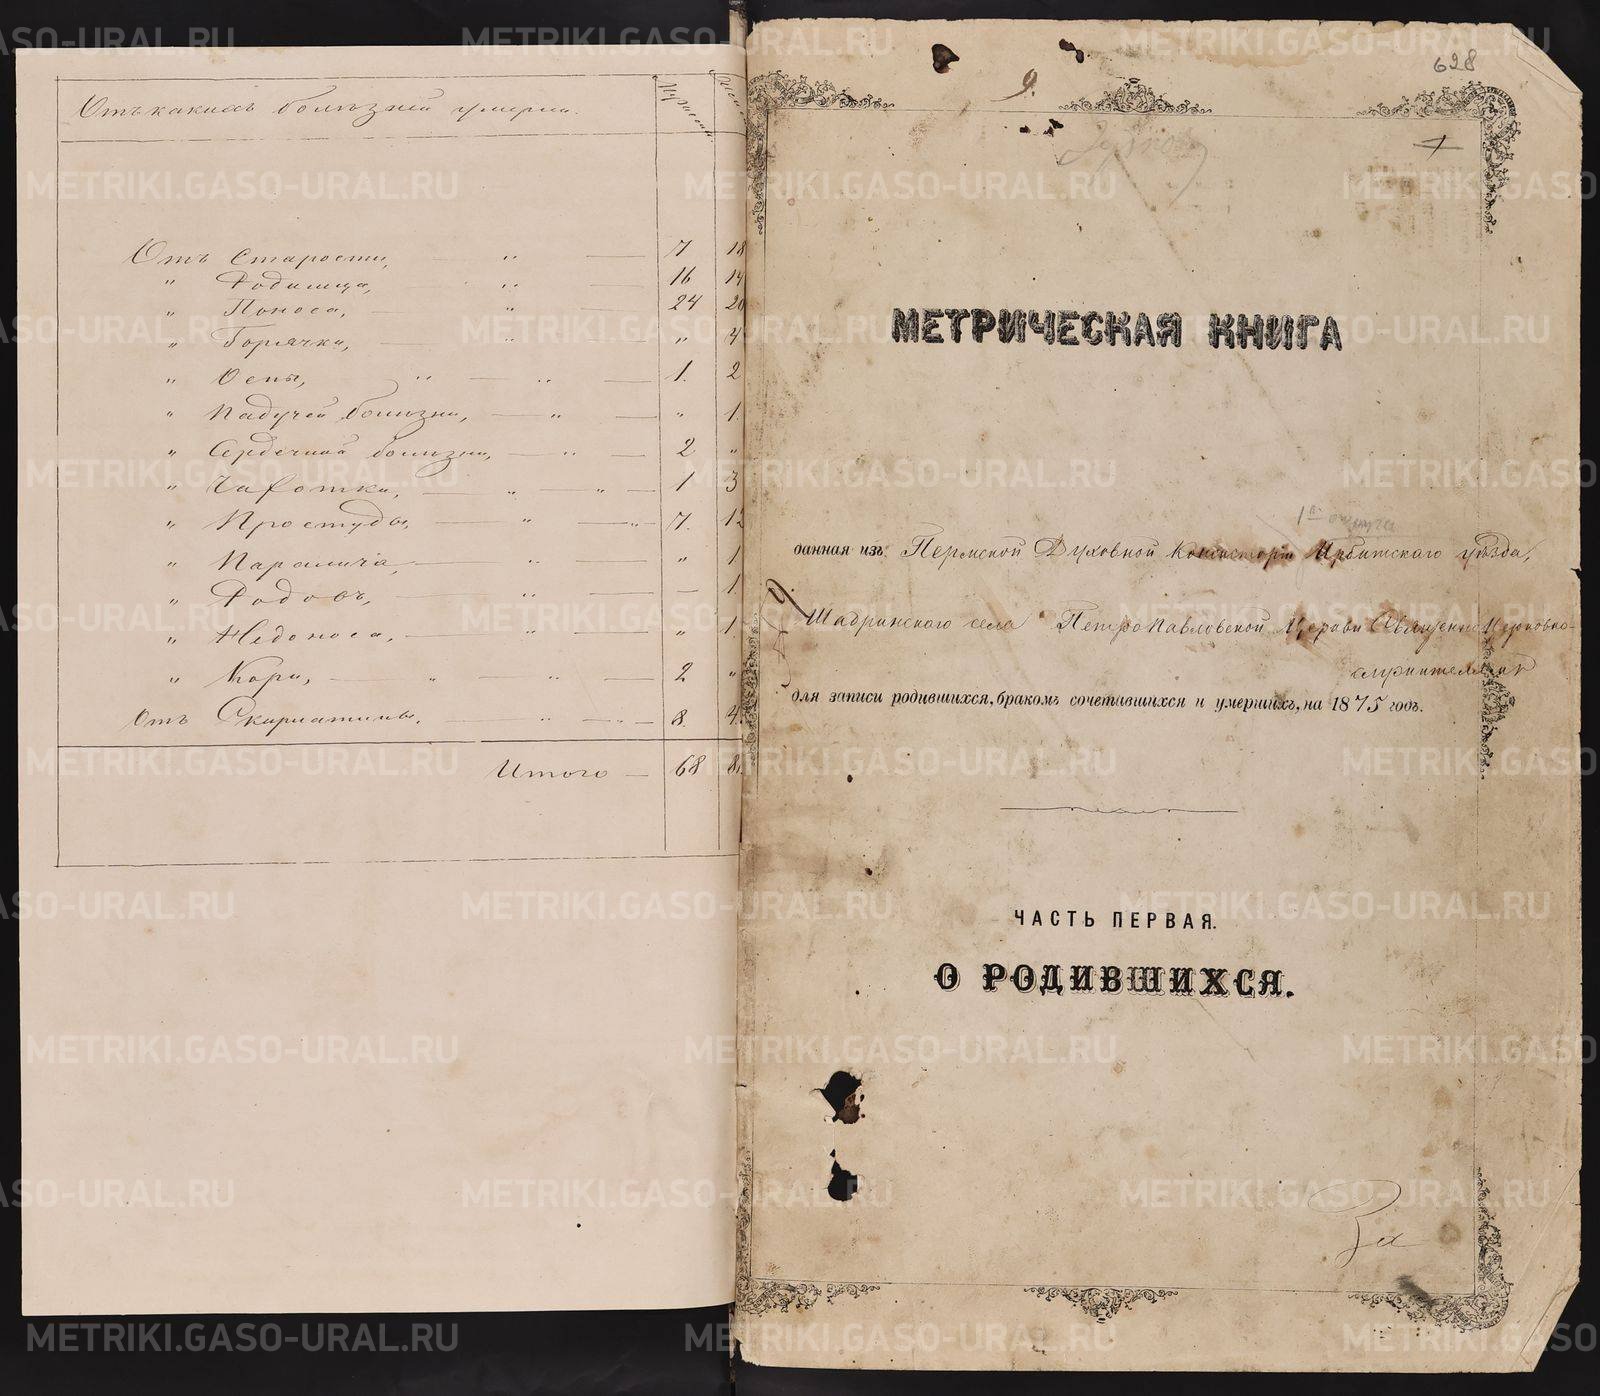 Отъ какихъ болѣзней умерли. Мужеска
Отъ Старости, „ — 7 18
„ Родимца, „ — 16 14
„ Поноса, — „ — 24 20
„ Горячки, — „ — „ 4
„ Оспы, „ — „ — 1. 2
„ Падучей болѣзни, — „ — „ 1.
„ Сердечной болѣзни, — „ — 2 „
„ Чахотки, — „ — „ — 1 3
„ Простуды, — „ — „ 7. 12
„ Паралича, — „ — „ 1
„ Родовъ, — „ — — 1.
„ Недоноса, — „ — „ 1
„ Кори, — „ — „ — 2 „
Отъ Скарлатины. — „ — „ — 8. 4.
Итого — 68 81.
628
9.
1
МЕТРИЧЕСКАЯ КНИГА
1го округа
данная изъ Пермской Духовной Консисторіи Ирбитскаго уѣзда,
Шадринскаго села Петропавловской Церкви Священно Церковно-
служителямъ
для записи родившихся, бракомъ сочетавшихся и умершихъ, на 1875 годъ.
ЧАСТЬ ПЕРВАЯ.
О РОДИВШИХСЯ.
За
METRIKI.GASO-URAL.RU